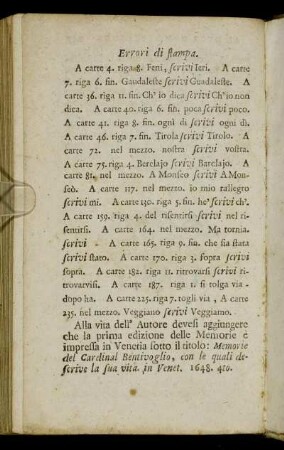 Errori di stampa.
A carte 4. riga 8. Feni, scrivi Ieri. A carte
7. riga 6. fin. Gaudaleste scrivi Guadaleste. A
carte 36. riga 11. fin. Ch' io dica scrivi Ch'io non
dica. A carte 40. riga 6. fin. poca scrivi poco.
A carte 41. riga 8. fin. ogni di scrivi ogni dì.
A carte 46. riga 7. fin. Tirola scrivi Tirolo. A
carte 72. nel mezzo. nostra scrivi vostra.
A carte 75. riga 4. Berclajo scrivi Barclajo. A
carte 81. nel mezzo. A Monseo scrivi A Mon-
seò. A carte 117. nel mezzo. io mio rallegro
scrivi mi. A carte 130. riga 5. fin. he' scrivi ch'.
A carte 159. riga 4. del risentirsi scrivi nel ri-
sentirsi. A carte 164. nel mezzo. Ma tornia.
scrivi A carte 165. riga 9. fin. che sia stata
scrivi stato. A carte 170. riga 3. sopra scrivi
sopra. A carte 182. riga 11. ritrovarsi scrivi ri-
trovatvisi. A carte 187. riga 1. si tolga via
dopo ha. A carte 225. riga 7. togli via, A carte
235. nel mezzo. Veggiano scrivi Veggiamo.
Alla vita dell' Autore devesi aggiungere
che la prima edizione delle Memorie è
impressa in Venezia sotto il titolo: Memorie
del Cardinal Bentivoglio, con le quali de-
scrive la sua vita. in Venet. 1648. 4to.